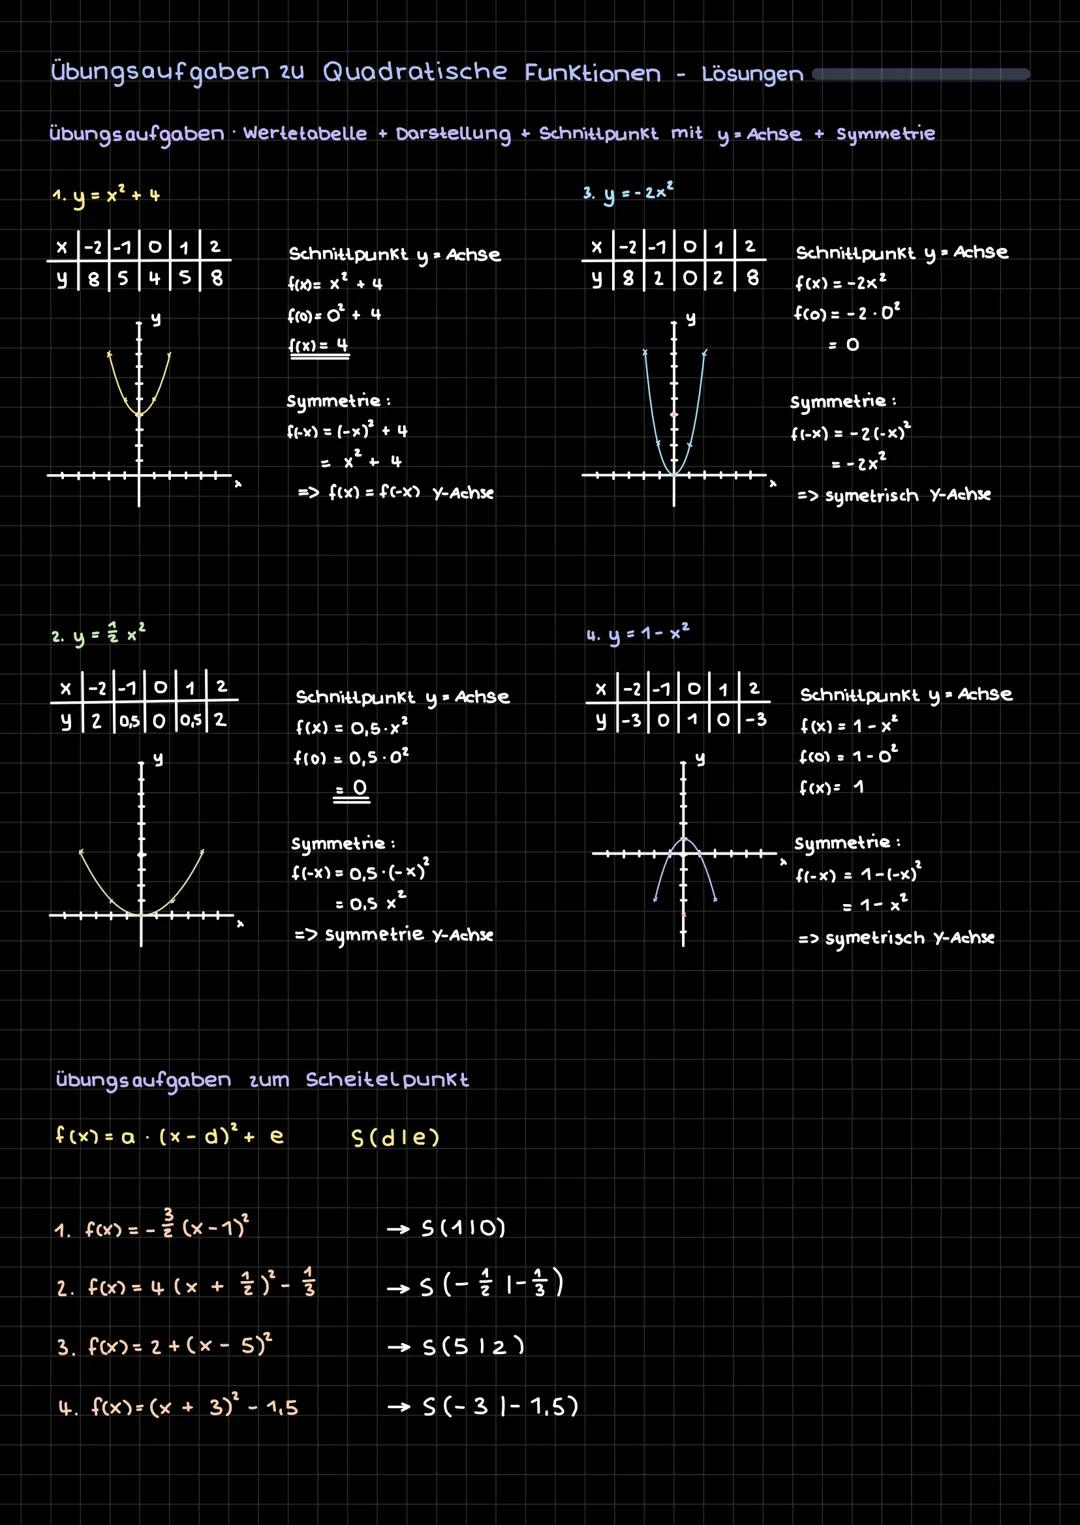 Übungsaufgaben zu Quadratische Funktionen - Lösungen
Übungsaufgaben · Wertetabelle + Darstellung + Schnittpunkt mit y=Achse + Symmetrie
1. y = x² + 4
x | -2 | -1 | 0 | 1 | 2
y | 8 | 5 | 4 | 5 | 8
y
x
Schnittpunkt y=Achse
f(x)= x² + 4
f(0)= 0² + 4
f(x)= 4
Symmetrie:
f(-x) = (-x)² + 4
= x² + 4
=> f(x) = f(-x) Y-Achse
3. y = -2x²
x | -2 | -1 | 0 | 1 | 2
y | 8 | 2 | 0 | 2 | 8
y
x
Schnittpunkt y=Achse
f(x) = -2x²
f(0) = -2 · 0²
= 0
Symmetrie:
f(-x) = -2(-x)²
= -2x²
=> symetrisch Y-Achse
2. y = ½ x²
x | -2 | -1 | 0 | 1 | 2
y | 2 | 0,5 | 0 | 0,5 | 2
y
x
Schnittpunkt y=Achse
f(x) = 0,5·x²
f(0) = 0,5·0²
= 0
Symmetrie:
f(-x) = 0,5·(-x)²
= 0,5 x²
=> symmetrie Y-Achse
4. y = 1 - x²
x | -2 | -1 | 0 | 1 | 2
y | -3 | 0 | 1 | 0 | -3
y
x
Schnittpunkt y=Achse
f(x) = 1 - x²
f(0) = 1 - 0²
f(x)= 1
Symmetrie:
f(-x) = 1-(-x)²
= 1- x²
=> symetrisch Y-Achse
Übungsaufgaben zum Scheitelpunkt
f(x) = a · (x - d)² + e S(d|e)
1. f(x) = - 3/2 (x-1)² → S(1|0)
2. f(x) = 4 (x + ½)² - ⅓ → S(-½ |-⅓)
3. f(x) = 2 + (x - 5)² → S(5|2)
4. f(x)= (x + 3)² - 1,5 → S(-3 |- 1,5)